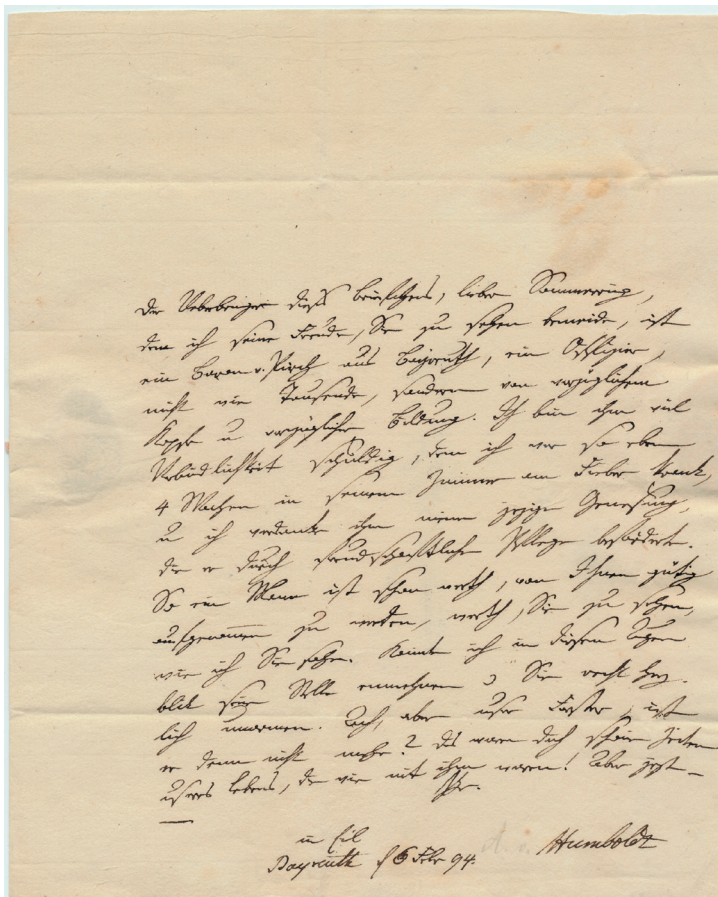 Der Ueberbringer dieses Briefchens, lieber Sömmerring,
dem ich seine Freude, Sie zu sehen beneide, ist
ein Baron v. aus Bayreuth, ein Offizier,
nicht wie Tausende, sondern von vorzüglichem
Kopfe u vorzüglicher Bildung. Ich bin ihm viel
Verbindlichkeit schuldig, denn ich war so eben
4 Wochen in seinem Zimmer am Fieber krank,
u ich verdanke ihm meine jezige Genesung,
die er durch freundschaftliche Pflege beförderte.
So ein Mann ist schon werth, von Ihnen gütig
aufgenommen zu werden, werth, Sie zu sehen,
wie ich Sie sahe. Könnte ich in diesem Augen
blik seine Stelle einnehmen u Sie recht herz-
lich umarmen. Ach, aber unser Forster, ist
er denn nicht mehr? das waren doch schöne Zeiten
unsres Lebens, da wir mit ihm waren! Aber jezt –
Ihr
in Eil
Bayreuth d 6 Febr 94.
A. v. Humboldt